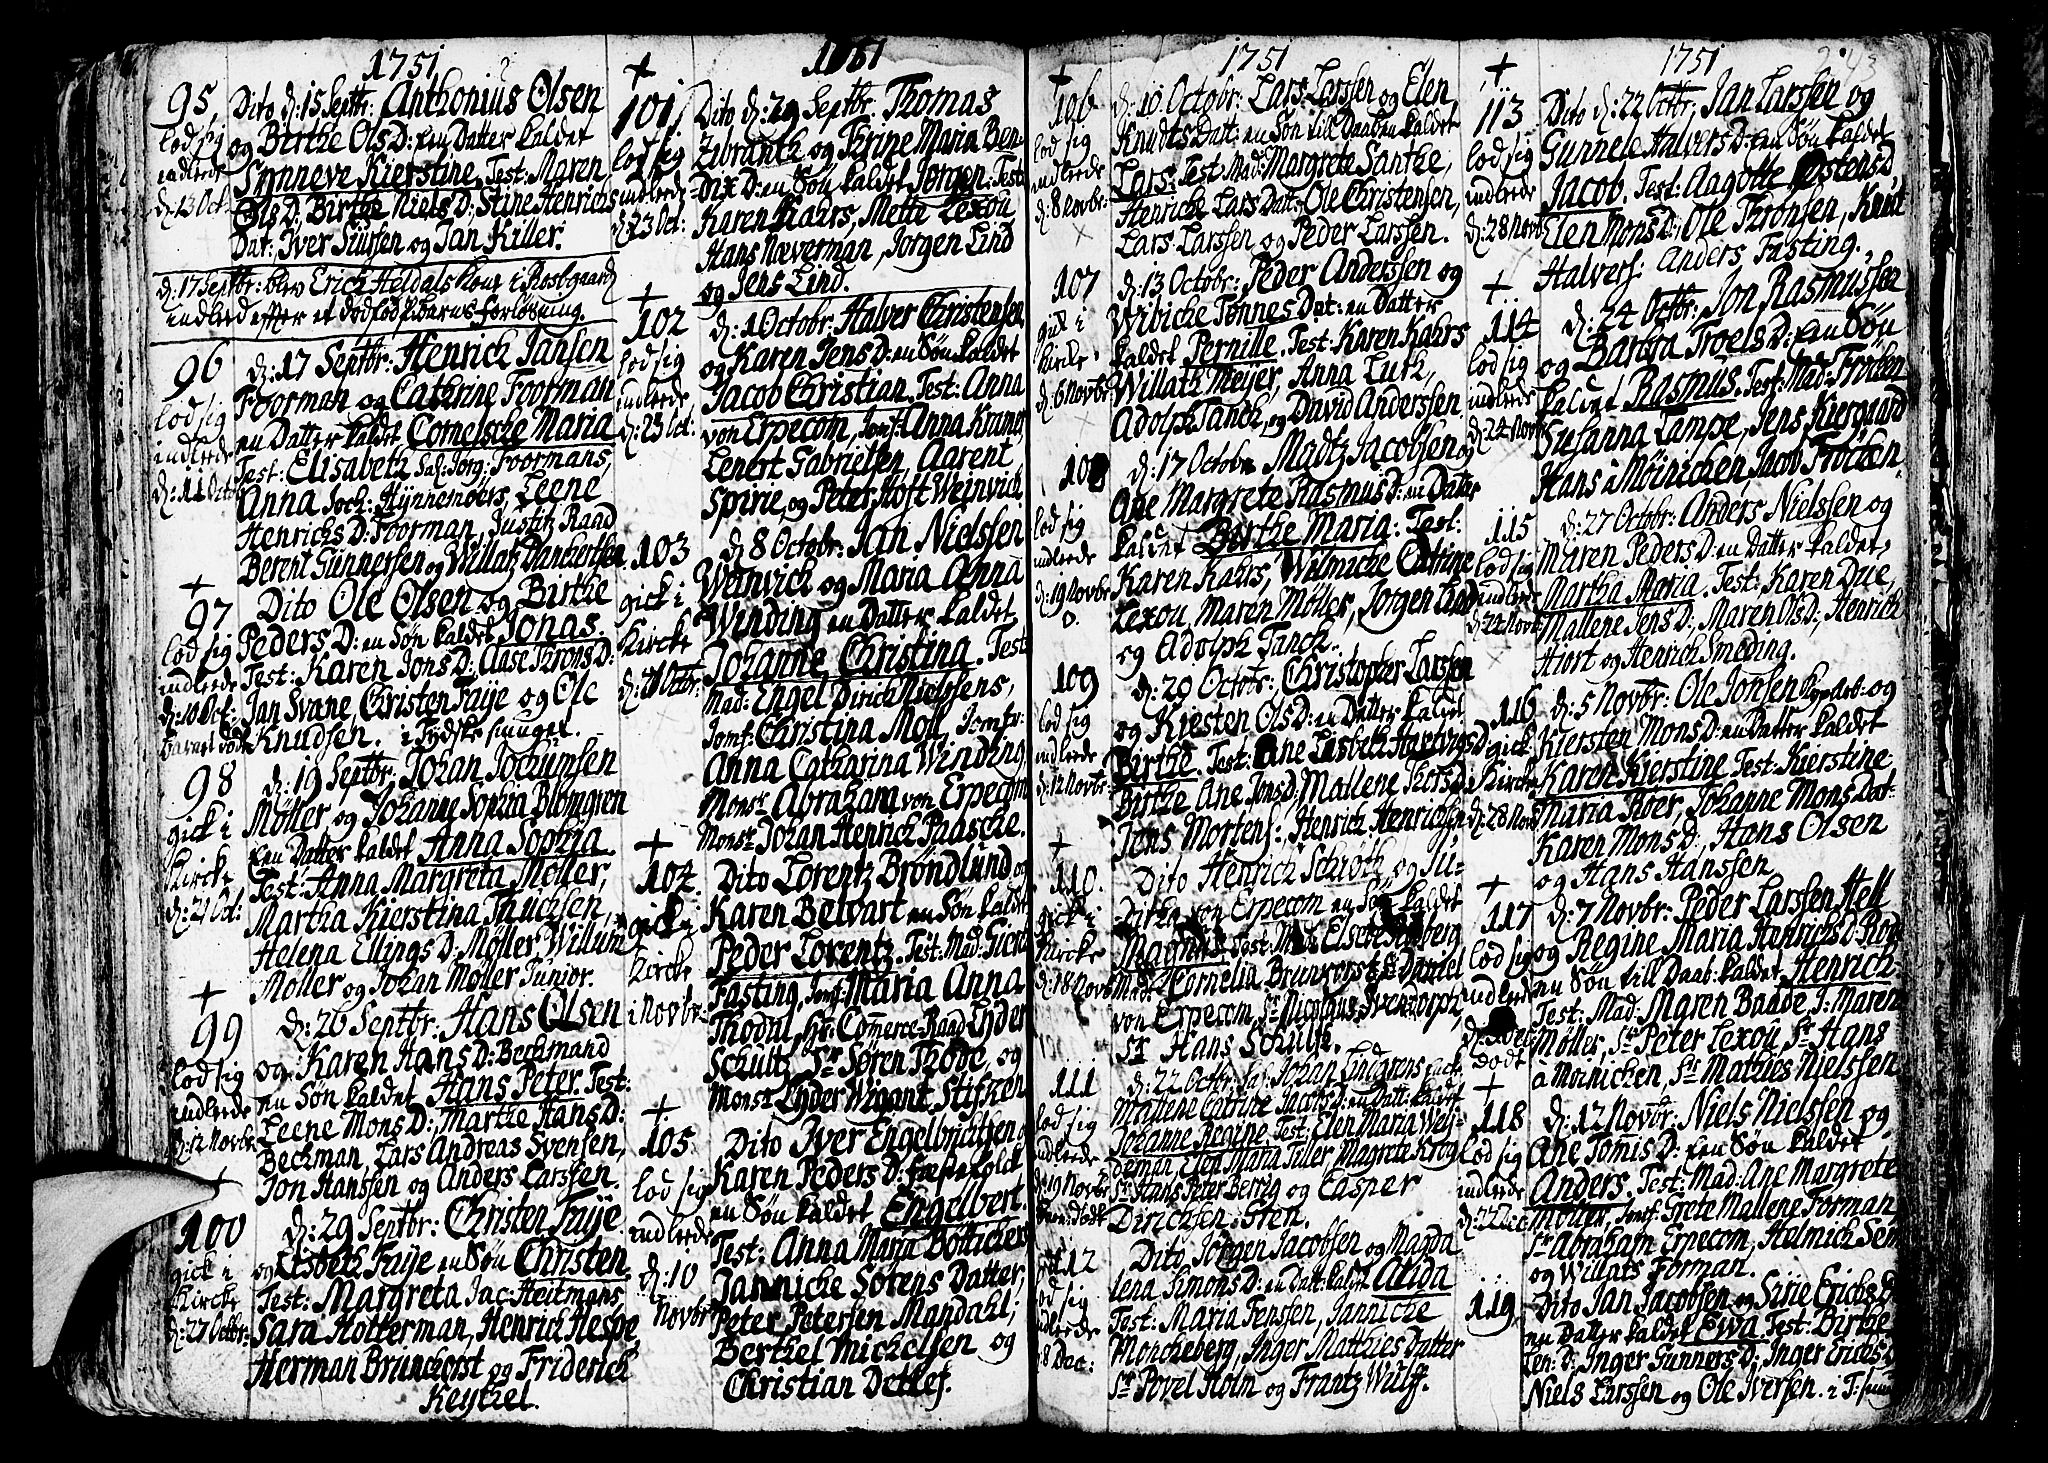 1751
95,
lod sig
indlede
d: 13 Oct:
Dito d: 15 Septbr: Anthonius Olsen
og Birthe Ols D: een Datter kaldet
Synneve Kierstine, Test: Maren
Ols D:, Birthe Niels D: Stine Henrichs
Dat:, Iver Siursen og Jan Killer.
d: 17 Septbr: blev Erich Heldals Kone i Rosesgaard
indleed effter et dødfød Barns forløsning.
96
lod sig
indlede
d: 11 Octbr
d: 17 Septbr: Henrich Jansen
Foorman og Cathrine Foorman
en Datter kaldet Cornelsche Maria
Test: Elisabeth Sal: Jørg: Foormans,
Anna Joch: Hynnemøers, Leene
Henrichs D: Foorman, Justitz Raad
Berent Gunnersen og Willatz Danckertsen
+
97
lod sig
indlede
d: 10 Oct:
barnet død
Dito Ole Olsen og Birthe
Peders D: en Søn kaldet Jonas.
Test: Karen Jons D: Aase Throns D:
Jan Svane, Christen Faÿe og Ole
Knudsen. i Tydskesmuget.
98
gick i
Kircke
d: 21 Oct:
d: 19 Septbr: Johan Jochumsen
Møller og Johanne Sophia Blomgren
een Datter kaldet Anna Sophia.
Test: Anna Margreta Møller,
Martha Kierstina Fuchsen,
Helena Ellings D: Møller, Willum
Møller og Johan Møller Junior.
+
99
lod sig
indlede
d: 12 Novbr
d: 26 Septbr: Hans Olsen
og Karen Hans D: Beckmand
en Søn kaldet Hans Peter. Test:
Leene Mons D:, Marthe Hans D:
Beckman, Lars Andreas Svensen,
Jon Hanssen og Anders Larssen.
+
100
gick i
Kircke
d: 27 Octbr:
d: 29 Septbr: Christen Faÿe
og Lisbeth Faÿe en Søn Christen.
Test: Margreta Jac: Heitmans,
Sara Holterman, Henrich Hespe,
Herman Brunchorst og Friderick
Keytzel.
1751
+
101
lod sig
indlede
d: 23 Oct:
Dito d: 29 Septbr: Thomas
Zibranth og Thrine Maria Ben-
dix D: en Søn kaldet Jørgen: Test:
Karen Kahrs, Mette Lexou
Hans Næverman, Jørgen Lind
og Jens Lind.
+
102
lod sig
indlede
d: 23 Oct:
d: 1 Octobr: Halver Christensen
og Karen Jens D: en Søn kaldet
Jacob Christian. Test: Anna
von Erpecom, Jomf: Anna Kramer
Lenert Gabrielsen, Aarent
Spirie, og Peter Hoft Weinvich
103
gick i
Kircke
d: Octbr:
d: 8 Octobr: Jan Nielssen
Weinvich og Maria Anna
Winding en Datter kaldet
Johanne Christina. Test:
Mad: Engel Dirich Nielssens,
Jomf: Christina Moll, Jomfr:
Anna Catharina Winding,
Monsr Abraham von Erpecom
Monsr Johan Henrich Paasche.
+
104.
gick i
Kircke
i Novbr:
Dito Lorentz Brøndlund og
Karen Beivart en Søn kaldet
Peder Lorentz. Test: Mad: Giert
Fasting, Jomf: Maria Anna
Thodul, Hr: Commerce-Raad Lyder
Schultz, Sr Søren Thode, og
Monsr Lyder Wigant Stifken
+
105
lod sig
indlede
d: 10
Novbr
Dito Iver Engelbrichtsen og
Karen Peders D: Fæstefolck
en Søn kaldet Engelbert.
Test: Anna Maria Böttichers
Jannicke Sørens Datter,
Peter Petersen Mandahl,
Berthel Mickelsen og
Christian Detlef.
1751
+
106
lod sig
indlede
d: 8 Novbr:
d: 10 Octobr: Lars Larssen og Elen
Knudts Datt: en Søn till Daaben kaldet
Lars. Test: Mad: Margrete Santhe,
Henriche Lars Datt: Ole Christensen,
Lars Larssen og Peder Larssen.
107
gik i
Kircke
d: 6 Novbr
d: 13 Octobr: Peder Anderssen og
Wibicke Tønnes Dat: en Datter
kaldet Pernille. Test: Karen Kahrs
Willath Meÿer, Anna Luth,
Adolph Janck og David Anderssen
108
lod sig
indlede
d: 19 Novbr
d: 17 Octobr: Madtz Jacobsen og
Ane Margrete Rasmus D: en Datter
kaldet Berthe Maria: Test:
Karen Kahrs, Wilmicke Catrine
Lexou, Maren Møller, Jørgen Lind
og Adolph Janck.
109
lod sig
indlede
d: 12 Novbr:
d: 20 Octobr: Christopher Larssen
og Kiesten Ols D: en Datter kaldet
Birthe. Test: Ane Lisbeth Hartvigs D
Birthe, Ane Jons D: Mallene
Jens Mortens: Henrich Henrichsen
+
110.
gick i
Kircke
d: 18 Novbr
Dito Henrich Schrøth og Ju-
Dirha von Erpecom en Søn kaldet
Magnus. Test: Mad: Elsebe
Mad: Cornelia Brunhorst & Daniel
von Erpecom, Sr Nicolaus Svendorph,
Sr Hans Schultz.
111
lod sig
indlede
d: 19 Novbr
barn: død
d: 22 Octbr: Sal: Johan Lindgrens
Mallene Catrine Jacobs D: en Datt: kaldet
Johanne Regine. Test: Elen Maria Wey-
deman, Elen Maria Tiller, Magrete Krog
Sr Hans Peter Berrig og Casper
Dirichsen: Sten.
112
lod sig
indlede
8 Dec:
Dito Jørgen Jacobsen og Magda
lena Simons D: en Datt: kaldt Alida
Test: Maria Jenssen, Jannicke
Moncheberg, Inger Matthies Datter
Sr Povel Holm og Frantz Wulff.
1751
243
+
113
lod sig
indlede
d: 28 Novb
Dito d: 22 Octbr: Jan Larssen og
Gunnele Halvers D: en Søn kaldet
Jacob. Test: Aagotte Østens D,
Elen Mons D:, Ole Thronsen, Knut
Halvers: Anders Fasting.
+
114
lod sig
indlede
d: 24 Novb
d: 24 Octbr: Jon Rasmussen
og Barbra Troels D: een Søn
kaldet Rasmus. Test: Mad: Frøchen
Susanna Lampe, Jens Kiergaard
Hans à Møinichen Jacob Frøchen.
115
lod sig
indlede
d: 24 Novb
d: 27 Octobr: Anders Nielssen og
Maren Peders D: en Datter kaldet,
Martha Maria. Test: Karen Due,
Mallene Jens D:, Maren Ols D:, Henrich
Hiort og Henrich Smeding.
116
gick
i Kircke
d: 28 Novb
d: 5 Novbr: Ole Jonsen og
Kiersten Mons D: en Datter kaldet
Karen Kierstine Test: Kierstine
Maria Boer, Johanne Mons Dat:
Karen Mons D:, Hans Olsen
og Hans Hanssen
+
117
lod sig
indlede
død
d: 7 Novbr: Peder Larssen Hell
og Regine Maria Henrichs D: Rode
en Søn till Daab: kaldet Henrich
Test: Mad: Maren Baade, J: Maren
Møller, Sr Peter Lexou, Sr Hans
à Moinichen, Sr Mathies Nielssen
+
118
lod sig
indlede
d: 22 Dec
d: 12 Novbr: Niels Nielssen og
Ane Tomis D: een Søn kaldet
Anders. Test: Mad: Ane Margrete
Møller, Jomf: Grete Mallene Forman,
Sr Abraham Erpecom, Helmich Sem
og Willats Forman.
119
Dito Jan Jacobsen og Sirie Erichs D
en Datter kaldet Ewa. Test: Birthe
Len: D: Inger Gunners D:, Inger Erichs D
Niels Larssen og Ole Iversen. i T: smug